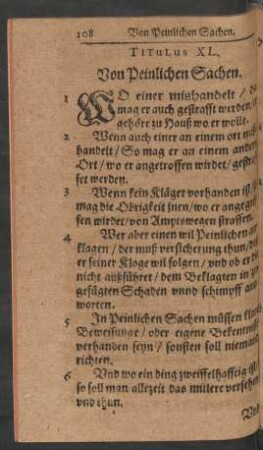 108 Von Peinlichen Sachen.
TITULUS XL.
Von Peinlichen Sachen.
1 WO einer mißhandelt / da
mag er auch gestrafft werden, er
gehöre zu Hauß wo er wolle.
2 Wenn auch einer an einem ort miß
handelt / So mag er an einem andern
Ort / wo er angetroffen wirdet / gestraf
fet werden.
3 Wenn kein Kläger vorhanden ist / so
mag die Obrigkeit inen / wo er angegrif
fen wirdet / von Amptswegen straffen.
4 Wer aber einen wil Peinlichen an
klagen / der muß versicherung thun / daß
er seiner Klage wil folgen / vnd ob er die
nicht außführet / dem Beklagten in zu
gefügten Schaden vnnd schimpff ant
worten.
5 In Peinlichen Sachen müssen klare
Beweisunge / oder eigene Bekentnuß
verhanden seyn / sonsten soll niemand
richten.
6 Vnd wo ein ding zweiffelhafftig ist /
so soll man allezeit das milere versehen
vnd thun.